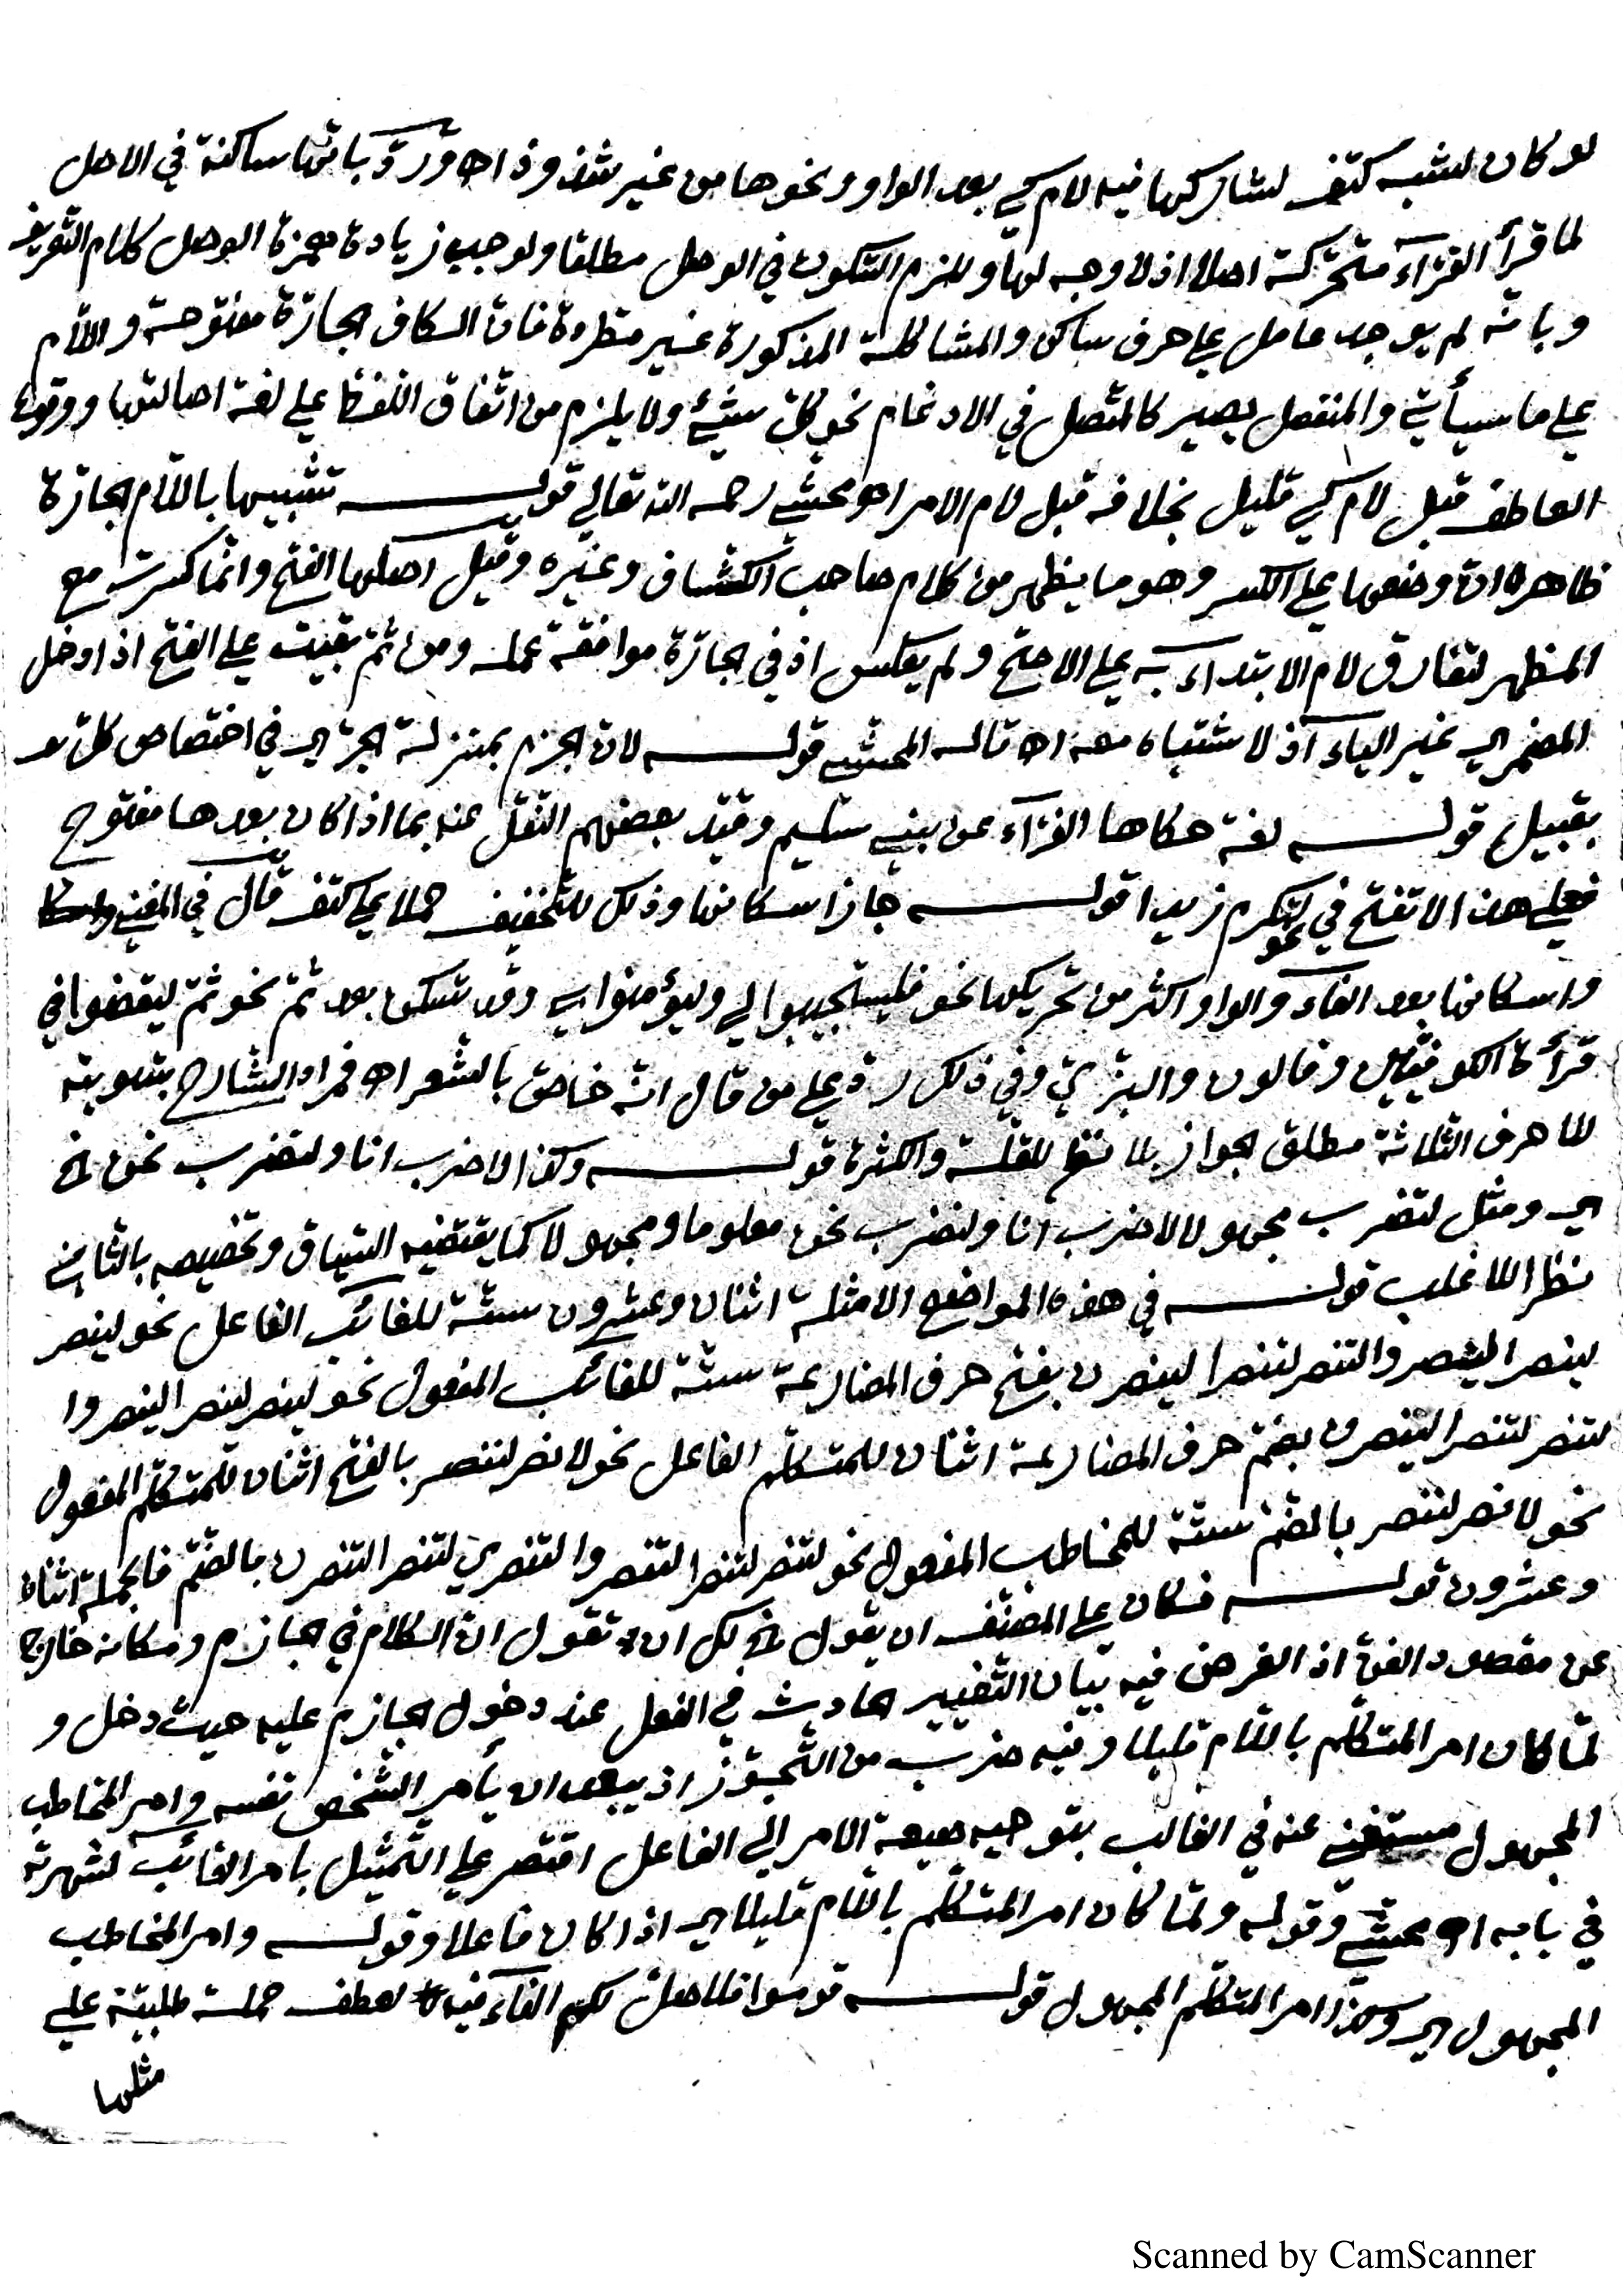 لو كان لشبه كتف لشاركها فيه لام كي بعد الواو ونحوها من غير شذوذ اه ورد بانها ساكنة في الاصل
لما قرأ القرّآء متحركة اصلا اذ لا وجه لها وللزم السّكون في الوصل مطلقا ولوجب زيادة همزة الوصل كلام التعريف
وبانه لم يوجد عامل على حرف ساكن والمشاكلة المذكورة غير مطردة فان الكاف الجارّة مفتوحة واللام
على ما سيأتي والمنفصل يصير كالمتّصل في الادغام نحو كلّ شيئ ولا يلزم من اتفاق اللفظ على لغة اصالتها ووقوع
العاطف قبل لام كي قليل بخلافه قبل لام الامر اه محشي رحمه الله تعالى قوله تشبيها باللام الجارّة
ظاهره ان وضعها على الكسر وهو ما يظهر من كلام صاحب الكشاف وغيره وقيل اصلها الفتح وانما كسرت مع
المظهر لتفارق لام الابتداء به على الاصح ولم يعكس اذ في الجارّة موافقة عمله ومن ثمّ بقيت على الفتح اذا دخل
المضمر اي غير الياء اذ لا شتباه معه اه قاله المحشي قوله لان الجزم بمنزلة الجرّ اي في اختصاص كل
بقبيل قوله لغة حكاها الفرّآء عن بني سليم وقيّد بعضهم النقل عنه بما اذا كان بعدها مفتوح
فعلى هذا لا تفتح في نحو لتكرم زيدا قوله جاز اسكانها وذلك للتخفيف حملا على كتف قال في المغني
واسكانها بعد الفآء والواو اكثر من تحريكها نحو فليستجيبوا لي وليؤمنوا بي وقد تسكن بعد ثمّ نحو ثمّ ليقضوا في
قرأة الكوفيين وقالون والبزّي وفي ذلك ردّ على من قال انه خاصّ بالشعر اه فمراد الشارح بتسويته
للاحرف الثلاثة مطلق الجواز بلا نظر للقلة والكثرة قوله وكذا لاضرب انا ولنضرب نحن الخ
اي ومثل لتضرب مجهولا لاضرب انا ولنضرب نحن معلوما ومجهولا كما يقتضيه السّياق وتخصيصه بالثاني
نظرا للاغلب قوله في هذه المواضع الامثلة اثنان وعشرون ستّة للغائب الفاعل نحو لينصر
لينصرا لينصروا لتنصر لتنصرا لينصرن بفتح حرف المضارعة ستّة للغائب المفعول نحو لينصر لينصرا لينصروا
لتنصر لتنصرا لينصرن بضمّ حرف المضارعة اثنان للمتكلّم الفاعل نحو لانصر لننصر بالفتح اثنان للمتكلّم المفعول
نحو لانصر لننصر بالضمّ ستّة للمخاطب المفعول نحو لتنصر لتنصرا لتنصروا لتنصري لتنصرا لتنصرن بالضمّ فالجملة اثنان
وعشرون قوله فكان على المصنّف ان يقول الخ لك ان تقول ان الكلام في الجازم ومكانه خارج
عن مقصود الفنّ اذ الغرض فيه بيان التغيير الحادث في الفعل عند دخول الجازم عليه حيث دخل و
لمّا كان امر المتكلّم باللام قليلا وفيه ضرب من التجوّز اذ يبعد ان يأمر الشخص نفسه وامر المخاطب
المجهول مستغنى عنه في الغالب بتوجيه صيغة الامر الى الفاعل اقتصر على التمثيل بامر الغائب لشهرته
في بابه اه محشّي وقوله ولمّا كان امر المتكلّم باللام قليلا اي اذا كان فاعلا وقوله وامر المخاطب
المجهول اي وكذا امر المتكلّم المجهول قوله قوموا فلاصلّ لكم الفآء فيه لعطف جملة طلبيّة على
مثلها
Scanned by CamScanner